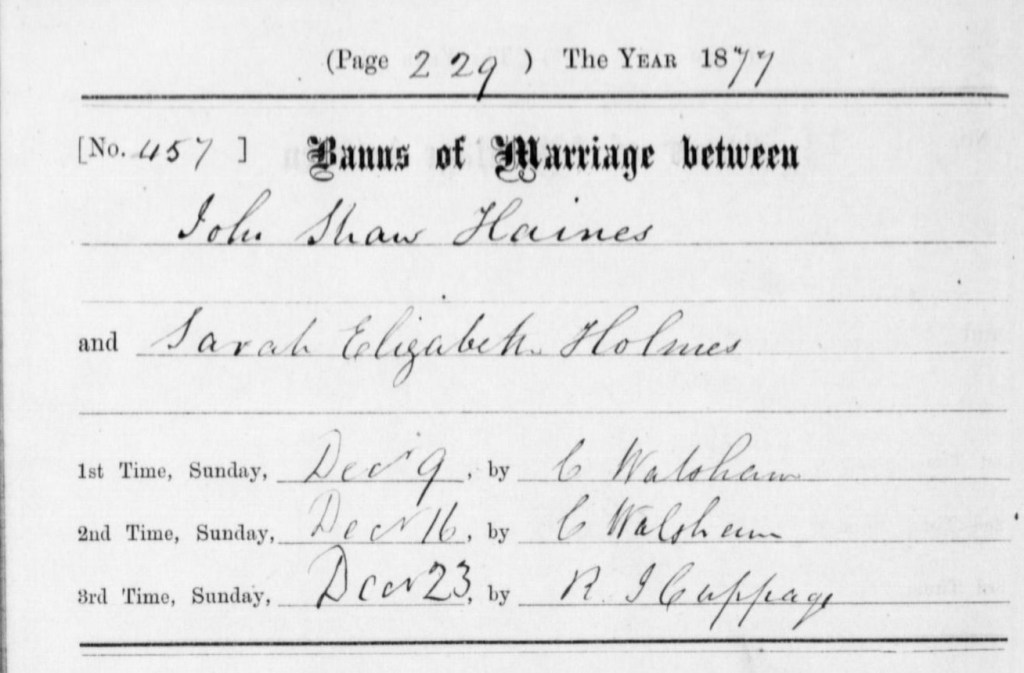 (Page 229) The YEAR 1877
[No. 457] Banns of Marriage between
John Shaw Haines
and Sarah Elizabeth Holmes
1st Time, Sunday, Decr 9, by C Walsham
2nd Time, Sunday, Decr 16, by C Walsham
3rd Time, Sunday, Decr 23, by R. J Cuppage